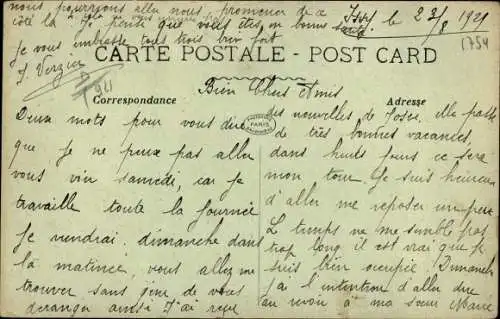 nous pourrons aller nous promener de ce
côté là Je pense que vous êtes en bonne santé
je vous embrasse tous trois bien fort
J. Verger
Issy le 23/8 1921
1754
CARTE POSTALE - POST CARD
Correspondance
Adresse
PARIS
Bien Chers Amis
Deux mots pour vous dire
que je ne peux pas aller
vous voir samedi, car je
travaille toute la journée
Je viendrai dimanche dans
la matinée, vous allez me
trouver sans gêne de vous
déranger ainsi J'ai reçu
des nouvelles de elle passe
de très bonnes vacances,
dans huit jours ce sera
mon tour Je suis heureux
d'aller me reposer un peu
Le temps ne me semble pas
trop long il est vrai que je
suis bien occupée Dimanche
j'ai l'intention d'aller dire
au revoir à ma sœur Marie